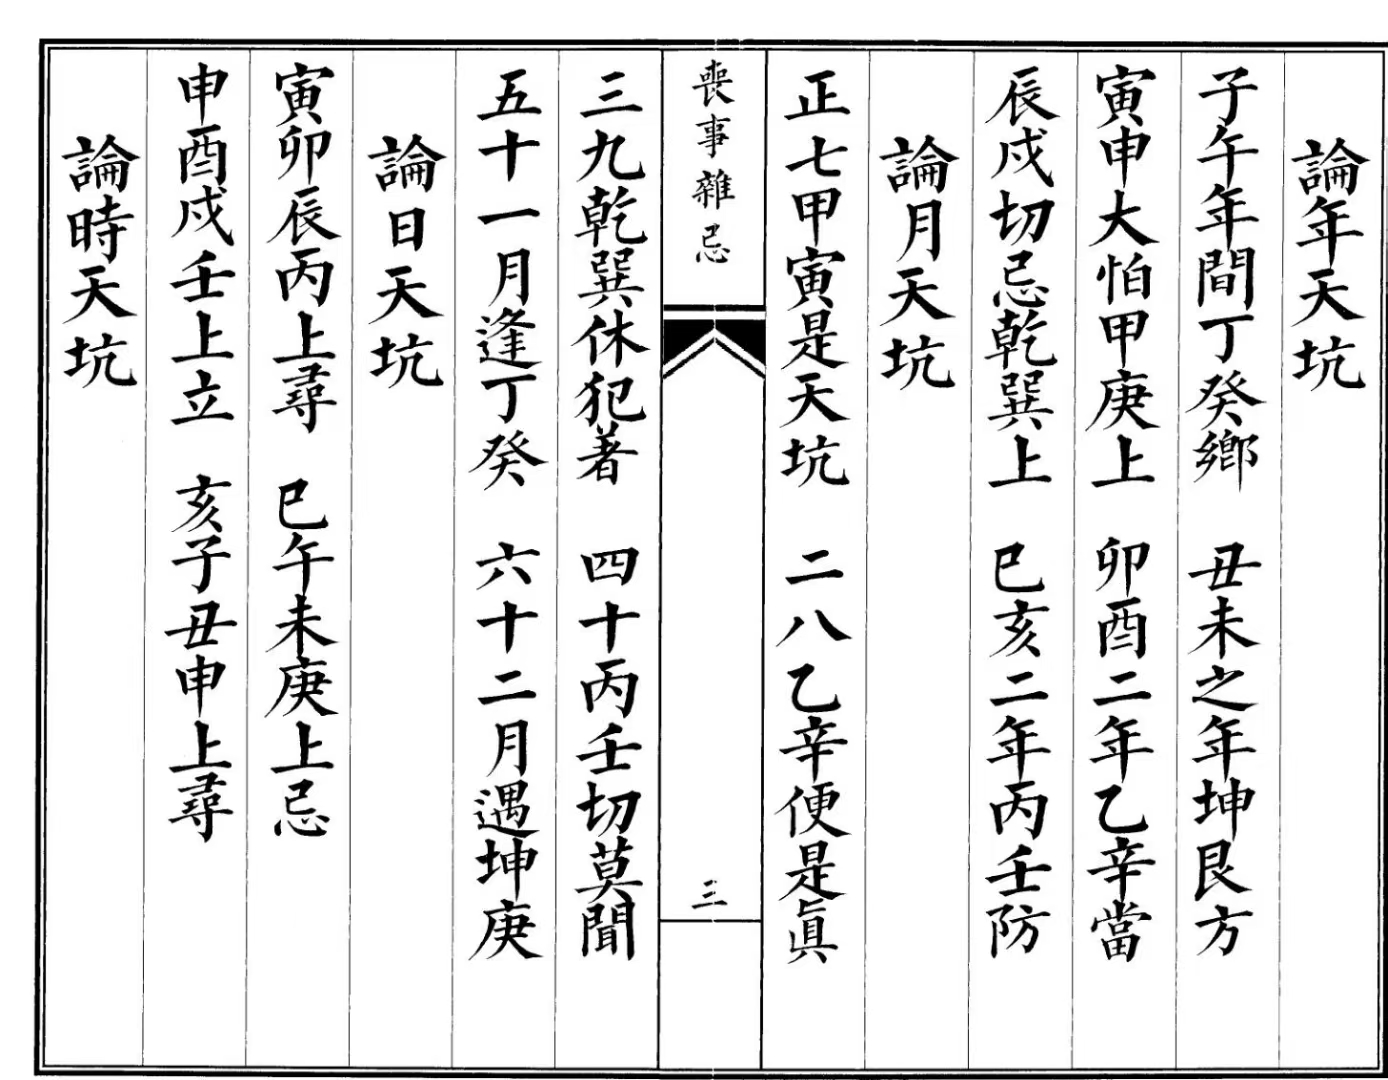 論年天坑
子午年間丁癸鄉　丑未之年坤艮方
寅申大怕甲庚上　卯酉二年乙辛當
辰戌切忌乾巽上　巳亥二年丙壬防
論月天坑
正七甲寅是天坑　二八乙辛便是眞
喪事雜忌
三
三九乾巽休犯著　四十丙壬切莫聞
五十一月逢丁癸　六十二月遇坤庚
論日天坑
寅卯辰丙上尋　巳午未庚上忌
申酉戌壬上立　亥子丑申上尋
論時天坑